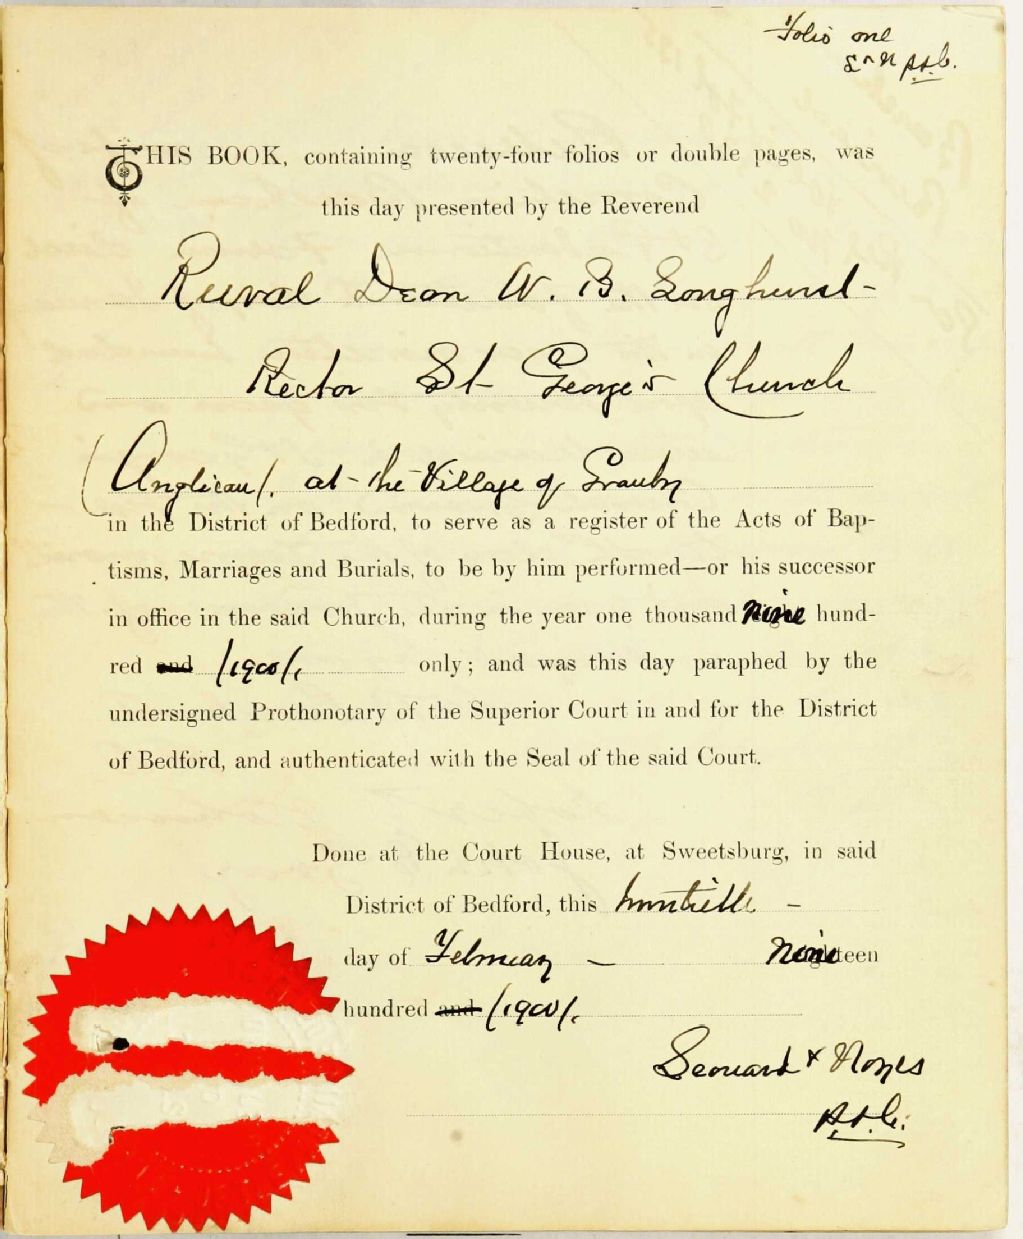 Folio one
L & N P.S.C.
THIS BOOK, containing twenty-four folios or double pages, was
this day presented by the Reverend
Rural Dean W. B. Longhurst-
Rector St George's Church
(Anglican). at the Village of Granby
in the District of Bedford, to serve as a register of the Acts of Bap-
tisms, Marriages and Burials, to be by him performed—or his successor
in office in the said Church, during the year one thousand nine hund-
red and (1900). only; and was this day paraphed by the
undersigned Prothonotary of the Superior Court in and for the District
of Bedford, and authenticated with the Seal of the said Court.
Done at the Court House, at Sweetsburg, in said
District of Bedford, this -
day of February — Nineteen
hundred and (1900).
Leonard & Noyes
P.S.C.